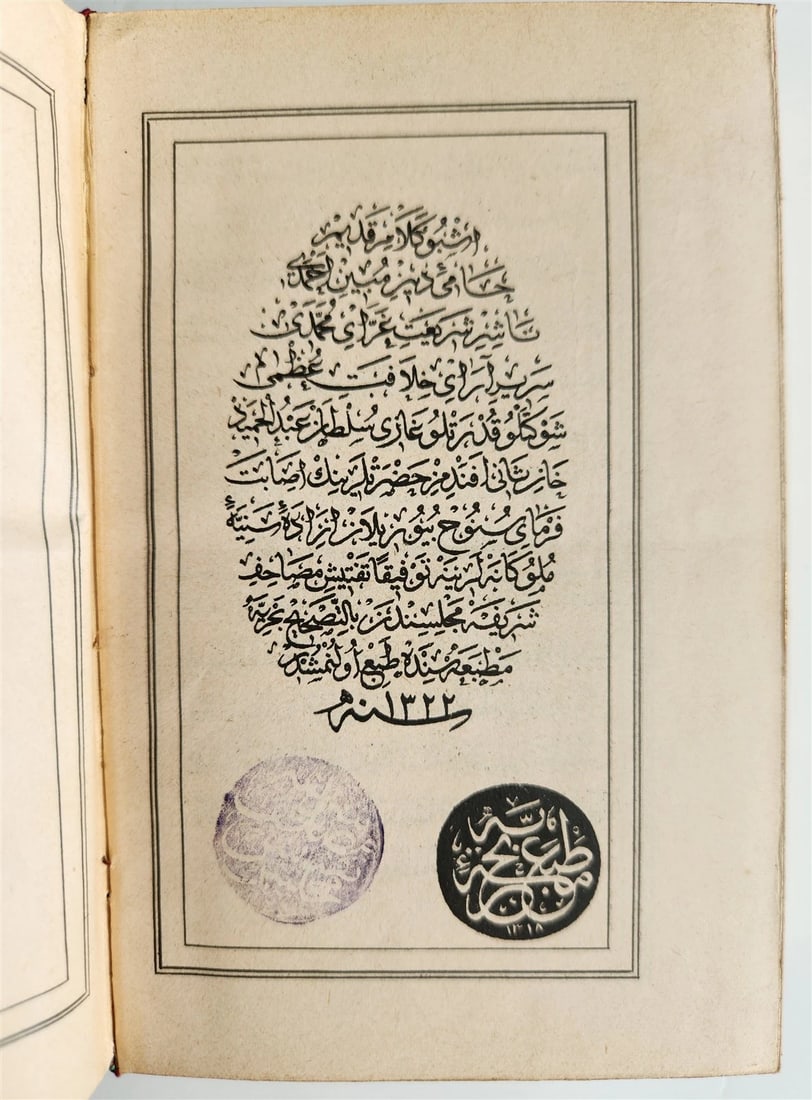 اشبو كلام قديم
حامئ دين مبين احمدى
ناشر شريعت غراى محمدى
سرير آراى خلافت عظمى
شوكتلو قدرتلو غازى سلطان عبد الحميد
خان ثانى افندمز حضرتلرينك اصابت
فرماى سنوح بيوريلان ارادۀ سنيۀ
ملوكانه لرينه توفيقا تفتيش مصاحف
شريفه مجلسندن بالتصحيح بحريه
مطبعه سنده طبع اولنمشدر
سنه ١٣٢٢
مطبعۀ بحريه
١٣١٨